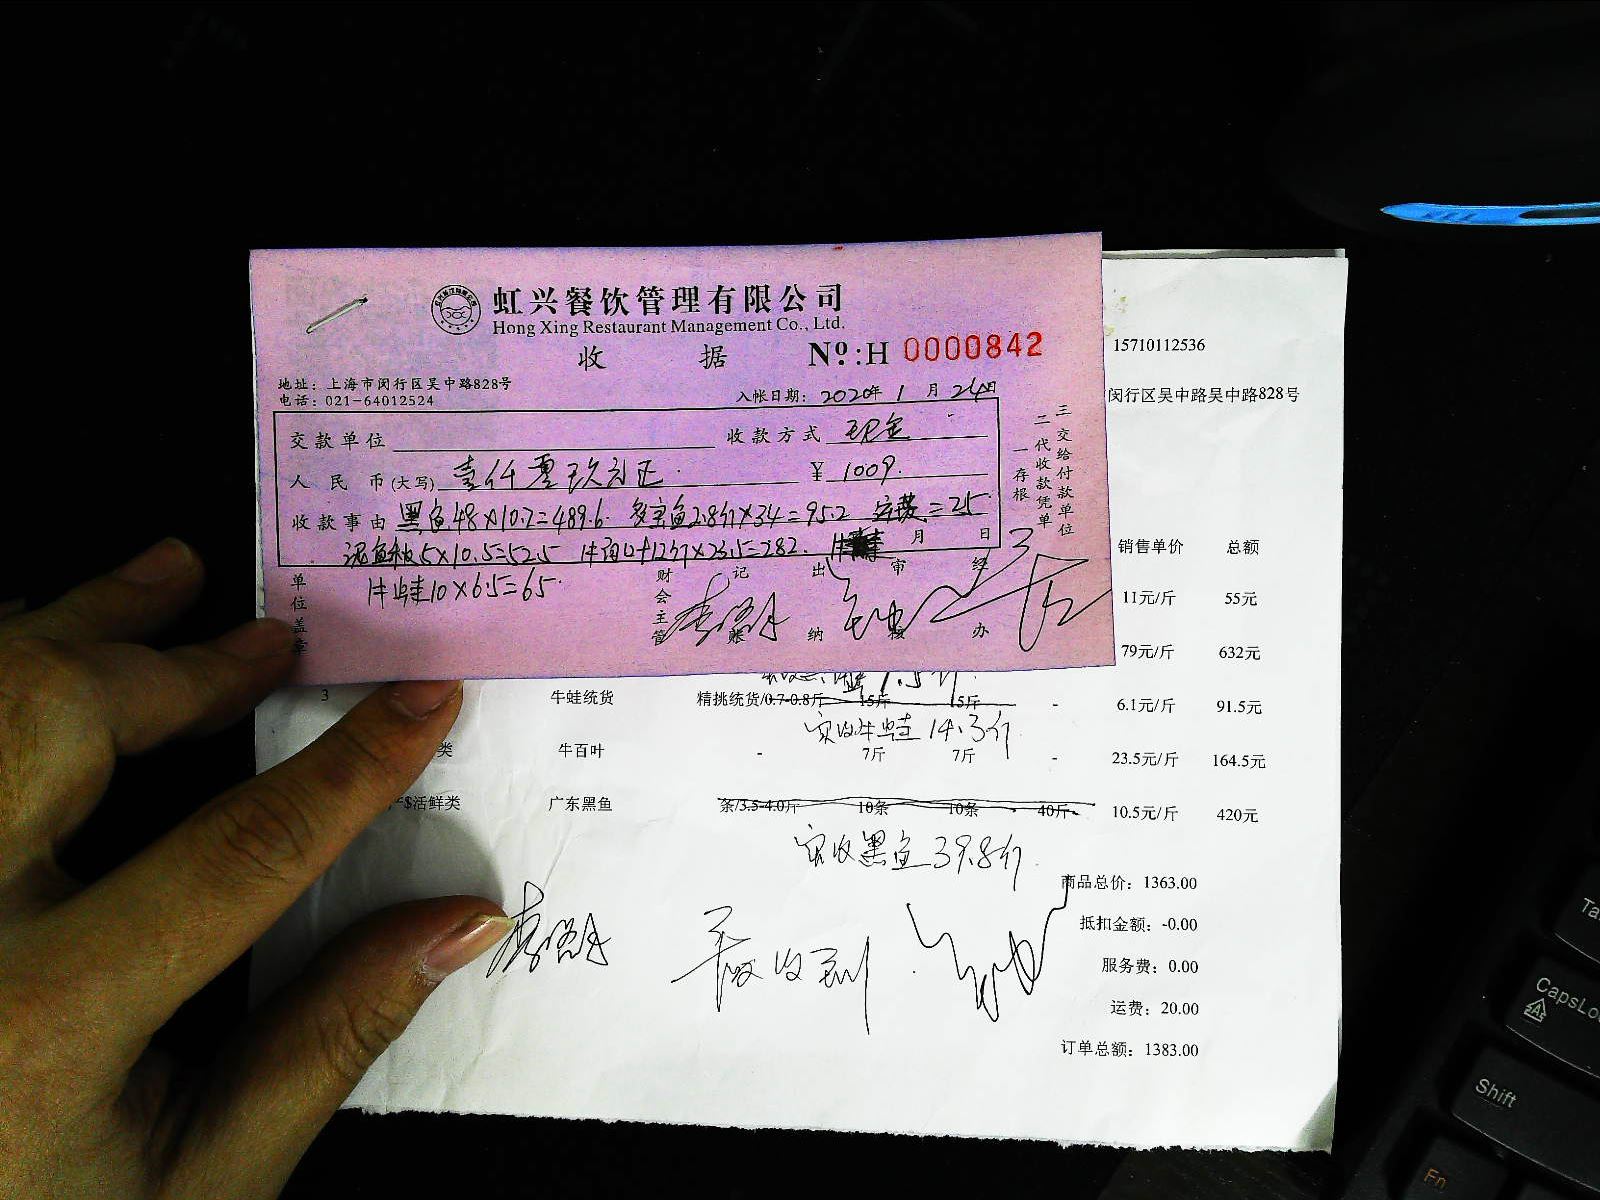 虹兴餐饮管理有限公司
Hong Xing Restaurant Management Co., Ltd.
收 据 Nº:H 0000842
地址：上海市闵行区吴中路828号
电话：021-64012524
入帐日期：2020年 1 月 24日
交款单位 收款方式 现金
人民币(大写) 壹仟零玖元正 ¥ 1009.
收款事由 黑鱼48×10.2=489.6. 多宝鱼2.8斤×34=95.2 运费=25.
5×10.5=52.5 12斤×23.5=282. 月 日
牛蛙10×6.5=65.
单位盖章 财会主管 记账 出纳 审核 经办
一存根
二代收款凭单
三交给付款单位
15710112536
闵行区吴中路吴中路828号
销售单价 总额
11元/斤 55元
79元/斤 632元
7.5斤.
3 牛蛙统货 精挑统货/0.7-0.8斤 15斤 15斤 - 6.1元/斤 91.5元
实收牛蛙 14.3斤.
类 牛百叶 - 7斤 7斤 - 23.5元/斤 164.5元
活鲜类 广东黑鱼 条/3.5-4.0斤 10条 10条 40斤 10.5元/斤 420元
实收黑鱼39.8斤.
商品总价：1363.00
抵扣金额：-0.00
收到
服务费：0.00
运费：20.00
订单总额：1383.00
CapsLo
Shift
Fn